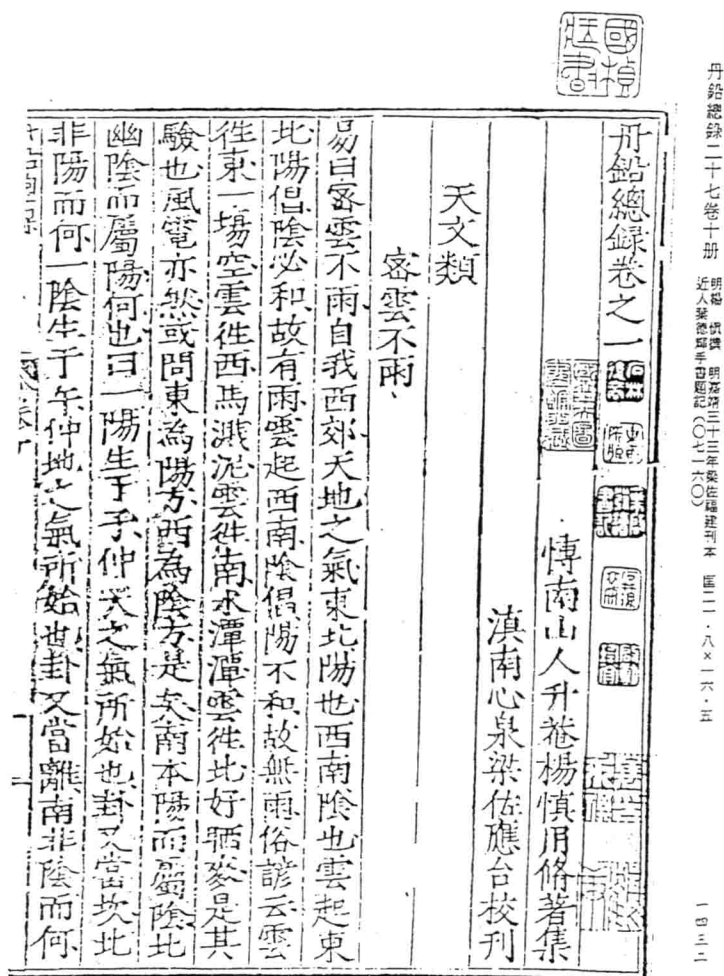 丹鉛總錄二十七卷十册
明楊 慎撰 明嘉靖三十三年梁佐福建刊本 匡二一·八×一六·五
近人葉德輝手書題記(〇七一六〇)
一四三二
丹鉛總録卷之一
博南山人升菴楊慎用脩著集
滇南心泉梁佐應台校刊
天文類
密雲不雨
易曰密雲不雨自我西郊天地之氣東北陽也西南陰也雲起東
北陽倡陰必和故有雨雲起西南陰倡陽不和故無雨俗諺云雲
徃東一塲空雲徃西馬濺泥雲徃南水潭潭雲徃北好晒麥是其
驗也風電亦然或問東為陽方西為陰方是矣南本陽而屬陰北
幽陰而屬陽何也曰一陽生于子仲天之氣所始也卦又當坎北
非陽而何一陰生于午仲地之氣所始也卦又當離南非陰而何